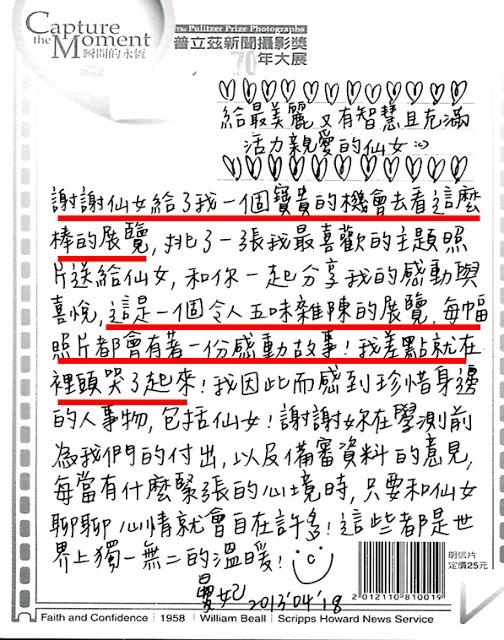 Capture
the Moment
瞬間的永恆
The Pulitzer Prize Photographs
普立茲新聞攝影獎
70年大展
給最美麗又有智慧且充滿
活力親愛的仙女
謝謝仙女給了我一個寶貴的機會去看這麼
棒的展覽，挑了一張我最喜歡的主題照
片送給仙女，和你一起分享我的感動與
喜悅，這是一個令人五味雜陳的展覽，每幅
照片都會有著一份感動故事！我差點就在
裡頭哭了起來！我因此而感到珍惜身邊
的人事物，包括仙女！謝謝妳在學測前
為我們的付出，以及備審資料的意見，
每當有什麼緊張的心境時，只要和仙女
聊聊心情就會自在許多！這些都是世
界上獨一無二的溫暖！
2013'04'18
明信片
定價25元
2012110810019
Faith and Confidence | 1958 | William Beall | Scripps Howard News Service